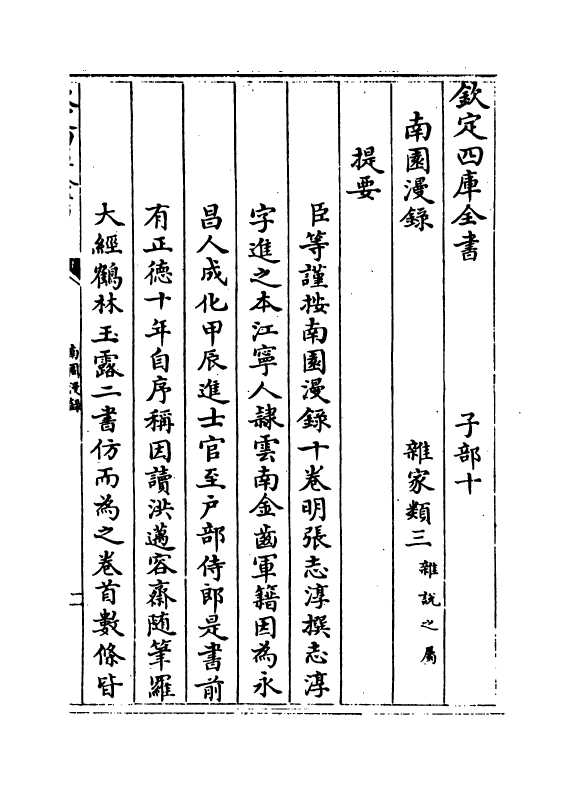 欽定四庫全書　子部十
南園漫錄　雜家類三 雜說之屬
提要
臣等謹按南園漫錄十卷明張志淳撰志淳
字進之本江寧人隸雲南金齒軍籍因為永
昌人成化甲辰進士官至户部侍郎是書前
有正德十年自序稱因讀洪邁容齋随筆羅
大經鶴林玉露二書仿而為之卷首數條皆
南園漫錄